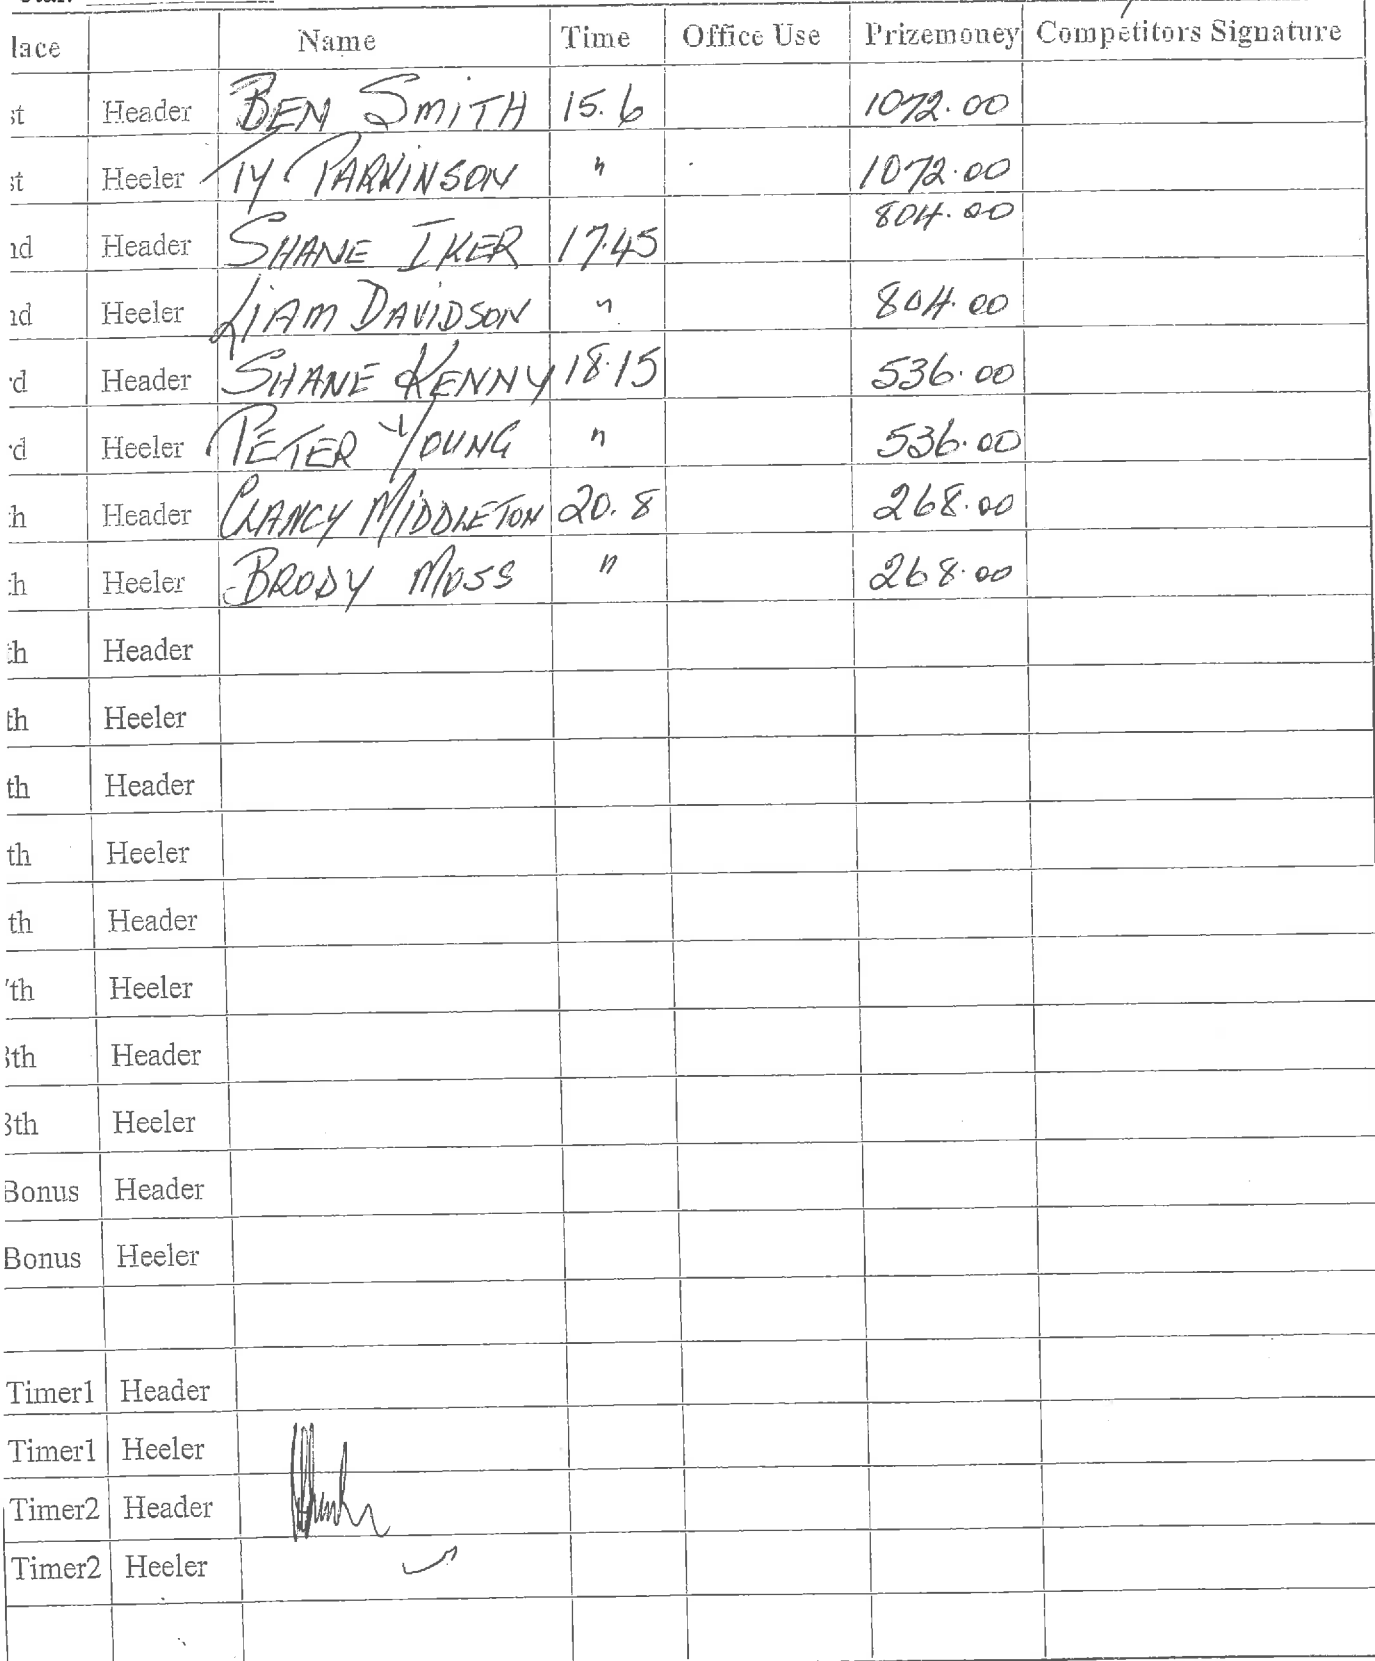 lace Name Time Office Use Prizemoney Competitors Signature
st Header BEN SMITH 15.6 1072.00
st Heeler TY PARKINSON " 1072.00
nd Header SHANE IKER 17.45 804.00
nd Heeler LIAM DAVIDSON " 804.00
rd Header SHANE KENNY 18.15 536.00
rd Heeler PETER YOUNG " 536.00
h Header CLANCY MIDDLETON 20.8 268.00
th Heeler BRODY MOSS " 268.00
th Header
th Heeler
th Header
th Heeler
th Header
7th Heeler
8th Header
8th Heeler
Bonus Header
Bonus Heeler
Timer1 Header
Timer1 Heeler
Timer2 Header
Timer2 Heeler